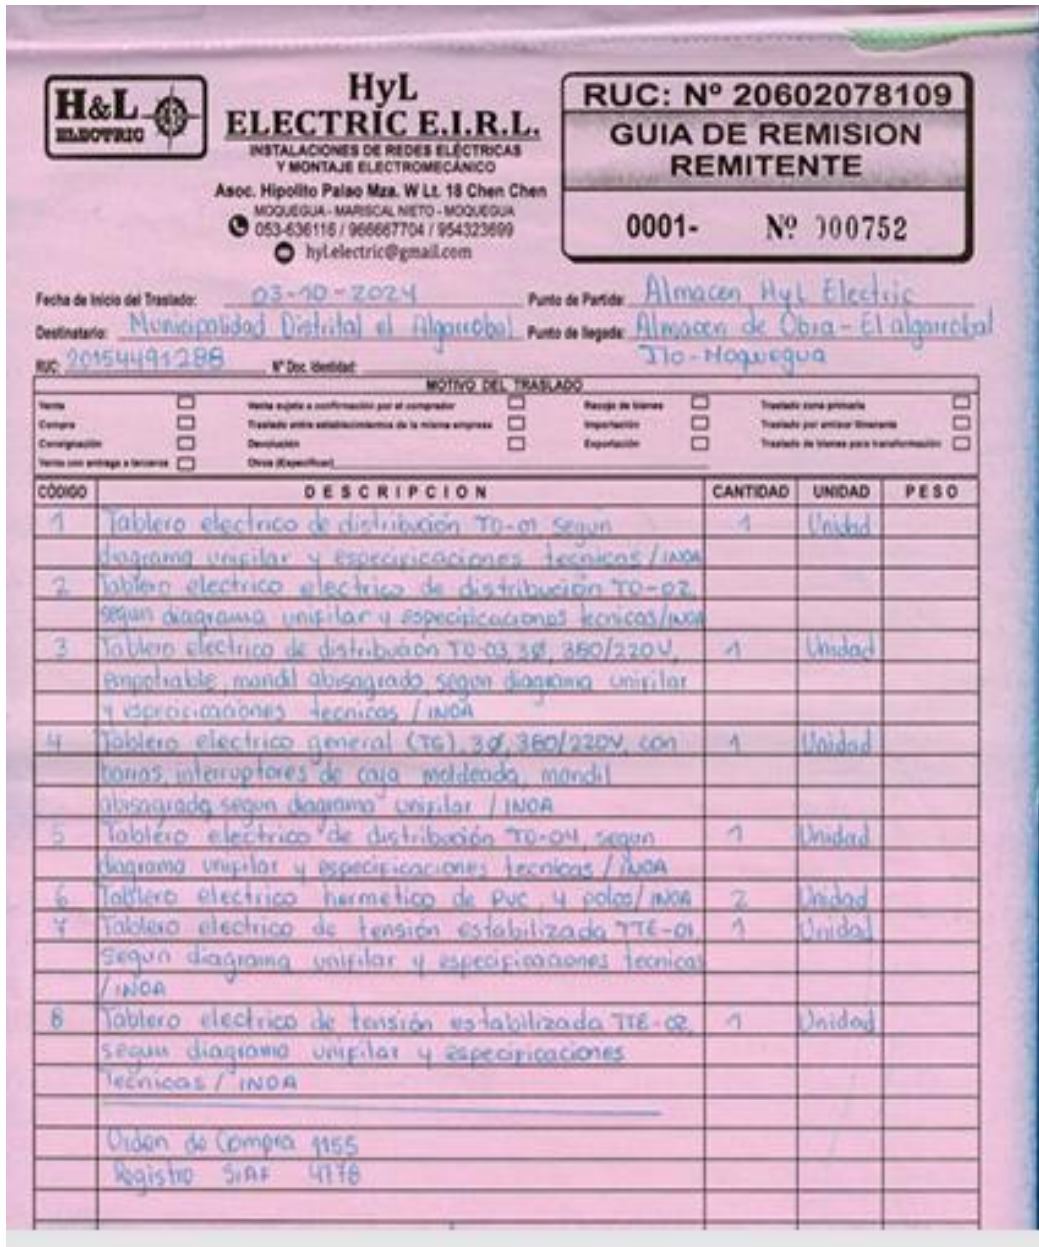 H&L
ELECTRIC
HyL
ELECTRIC E.I.R.L.
INSTALACIONES DE REDES ELÉCTRICAS
Y MONTAJE ELECTROMECÁNICO
Asoc. Hipolito Palao Mza. W Lt. 18 Chen Chen
MOQUEGUA - MARISCAL NIETO - MOQUEGUA
053-636116 / 966667704 / 954323699
hyl.electric@gmail.com
RUC: Nº 20602078109
GUIA DE REMISION
REMITENTE
0001- Nº 000752
Fecha de Inicio del Traslado: 03-10-2024 Punto de Partida: Almacen HyL Electric
Destinatario: Municipalidad Distrital el Algarrobal Punto de llegada: Almacen de Obra - El algarrobal
RUC: 20154491288 Nº Doc. Identidad: Ilo-Moquegua
MOTIVO DEL TRASLADO
Venta Venta sujeta a confirmación por el comprador Recojo de bienes Traslado zona primaria
Compra Traslado entre establecimientos de la misma empresa Importación Traslado por emisor itinerante
Consignación Devolución Exportación Traslado de bienes para transformación
Venta con entrega a terceros Otros (Especificar)
CÓDIGO DESCRIPCION CANTIDAD UNIDAD PESO
1 Tablero electrico de distribución TD-01 segun 1 Unidad
diagrama unifilar y especificaciones tecnicas / INOA
2 Tablero electrico electrico de distribución TD-02,
segun diagrama unifilar y especificaciones tecnicas/INOA
3 Tablero electrico de distribución TD-03, 3Ø, 380/220V, 1 Unidad
empotrable, mandil abisagrado, segun diagrama unifilar
y especificaciones tecnicas / INOA
4 Tablero electrico general (TG), 3Ø, 380/220V, con 1 Unidad
barras, interruptores de caja moldeada, mandil
abisagrado segun diagrama unifilar / INOA
5 Tablero electrico de distribución TD-04, segun 1 Unidad
diagrama unifilar y especificaciones tecnicas / INOA
6 Tablero electrico hermetico de PVC 4 polos/ INOA 2 Unidad
7 Tablero electrico de tensión estabilizada TTE-01, 1 Unidad
segun diagrama unifilar y especificaciones tecnicas
/ INOA
8 Tablero electrico de tensión estabilizada TTE-02, 1 Unidad
segun diagrama unifilar y especificaciones
Tecnicas / INOA
Orden de Compra 1155
Registro SIAF 4778